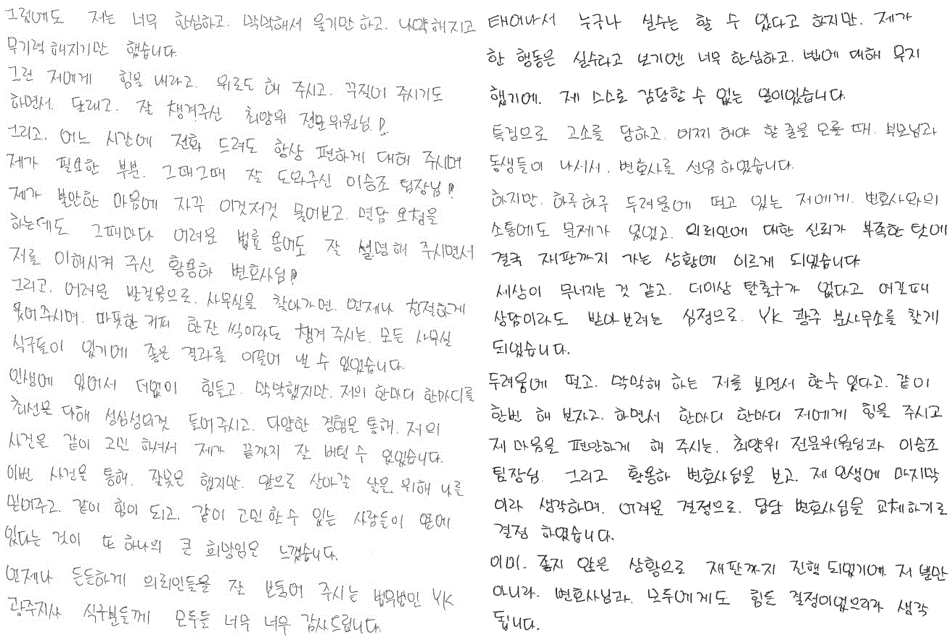 그럼에도 저는 너무 한심하고. 막막해서 울기만 하고. 나약해지고
무기력해지기만 했습니다.
그런 저에게 힘을 내라고. 위로도 해 주시고. 꾸짖어 주시기도
하면서. 달래고. 잘 챙겨주신 최양위 전문위원님!
그리고. 어느 시간에 전화 드려도 항상 편하게 대해 주시며
제가 필요한 부분. 그때그때 잘 도와주신 이승조 팀장님!
제가 불안한 마음에 자꾸 이것저것 물어보고. 면담 요청을
하는데도 그때마다 어려운 법률 용어도 잘 설명해 주시면서
저를 이해시켜 주신 황용하 변호사님!
그리고. 어려운 발걸음으로. 사무실을 찾아가면. 언제나 친절하게
웃어주시며. 따뜻한 커피 한잔 씩이라도 챙겨 주시는. 모든 사무실
식구들이 있기에 좋은 결과를 이끌어 낼 수 있었습니다.
인생에 있어서 더없이 힘들고. 막막했지만. 저의 한마디 한마디를
최선을 다해 성심성의껏 들어주시고. 다양한 경험을 통해. 저의
사건을 같이 고민 하셔서 제가 끝까지 잘 버틸 수 있었습니다.
이번 사건을 통해. 잘못은 했지만. 앞으로 살아갈 삶을 위해 나를
믿어주고. 같이 힘이 되고. 같이 고민할 수 있는 사람들이 옆에
있다는 것이 또 하나의 큰 희망임을 느꼈습니다.
언제나 든든하게 의뢰인들을 잘 보듬어 주시는 법무법인 YK
광주지사 식구분들께 모두들 너무 너무 감사드립니다.
태어나서 누구나 실수는 할 수 있다고 하지만. 제가
한 행동은 실수라고 보기엔 너무 한심하고. 법에 대해 무지
했기에. 제 스스로 감당할 수 없는 일이었습니다.
특정으로 고소를 당하고. 어찌 해야 할 줄을 모를 때. 부모님과
동생들이 나서서. 변호사를 선임 하였습니다.
하지만. 하루하루 두려움에 떨고 있는 저에게. 변호사와의
소통에도 문제가 있었고. 의뢰인에 대한 신뢰가 부족한 탓에
결국 재판까지 가는 상황에 이르게 되었습니다
세상이 무너지는 것 같고. 더이상 탈출구가 없다고 여길때
상담이라도 받아보려는 심정으로. YK 광주 분사무소를 찾게
되었습니다.
두려움에 떨고. 막막해 하는 저를 보면서 할수 있다고. 같이
한번 해 보자고. 하면서 한마디 한마디 저에게 힘을 주시고
제 마음을 편안하게 해 주시는. 최양위 전문위원님과 이승조
팀장님. 그리고 황용하 변호사님을 보고. 제 인생에 마지막
이라 생각하며. 어려운 결정으로. 담당 변호사님을 교체하기로
결정 하였습니다.
이미. 좋지 않은 상황으로 재판까지 진행 되었기에 저 뿐만
아니라. 변호사님과. 모두에게도 힘든 결정이었으리라 생각
됩니다.